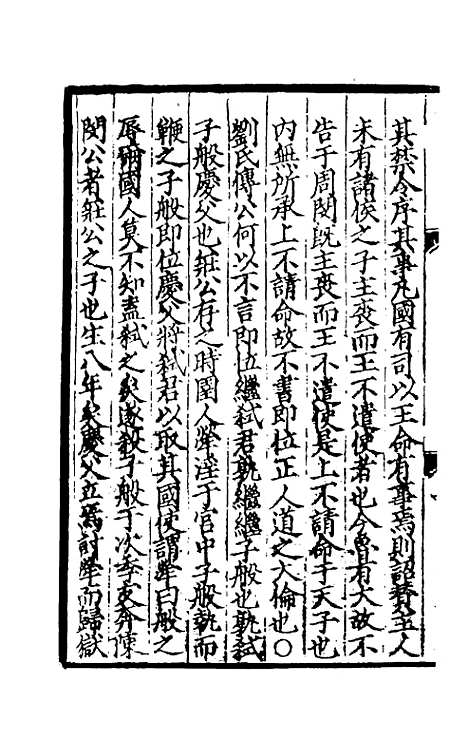 其禁令序其事凡國有司以王命有事焉則詔贊主人
未有諸侯之子主喪而王不遣使者也今魯有大故不
告于周閔旣主喪而王不遣使是上不請命于天子也
內無所承上不請命故不書即位正人道之大倫也○
劉氏傳公何以不言即位繼弑君孰繼繼子般也孰弑
子般慶父也莊公存之時圉人犖淫于宮中子般執而
鞭之子般即位慶父將弑君以取其國使謂犖曰般之
辱爾國人莫不知盍弑之矣遂殺子般于次季友奔陳
閔公者莊公之子也生八年矣慶父立焉討犖而歸獄